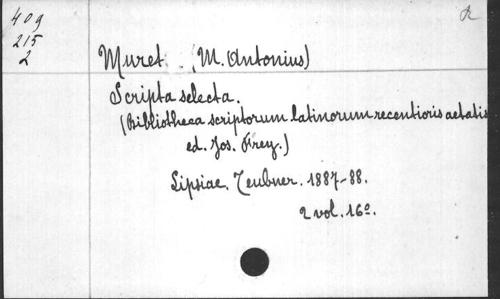 409
215
2
R
Muret (M. Antonius)
Scripta selecta.
(Bibliotheca scriptorum latinorum recentioris aetatis
ed. Jos. Frey.)
Lipsiae, Teubner. 1887-88.
2 vol. 16º.